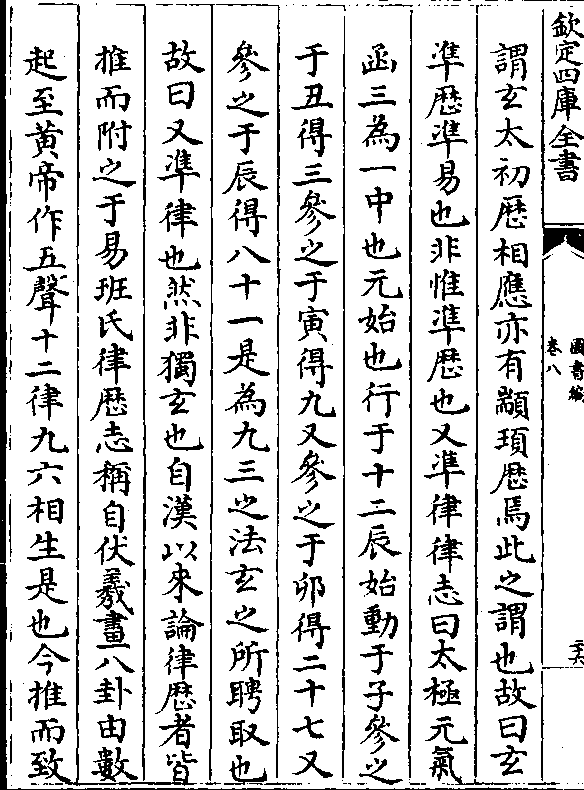 欽定四庫全書
圖書編
卷八
二十六
謂玄太初厯相應亦有顓頊厯焉此之謂也故曰玄
準厯準易也非惟準厯也又準律律志曰太極元氣
函三為一中也元始也行于十二辰始動于子參之
于丑得三參之于寅得九又參之于卯得二十七又
參之于辰得八十一是為九三之法玄之所聘取也
故曰又準律也然非獨玄也自漢以來論律厯者皆
推而附之于易班氏律厯志稱自伏羲畫八卦由數
起至黄帝作五聲十二律九六相生是也今推而致